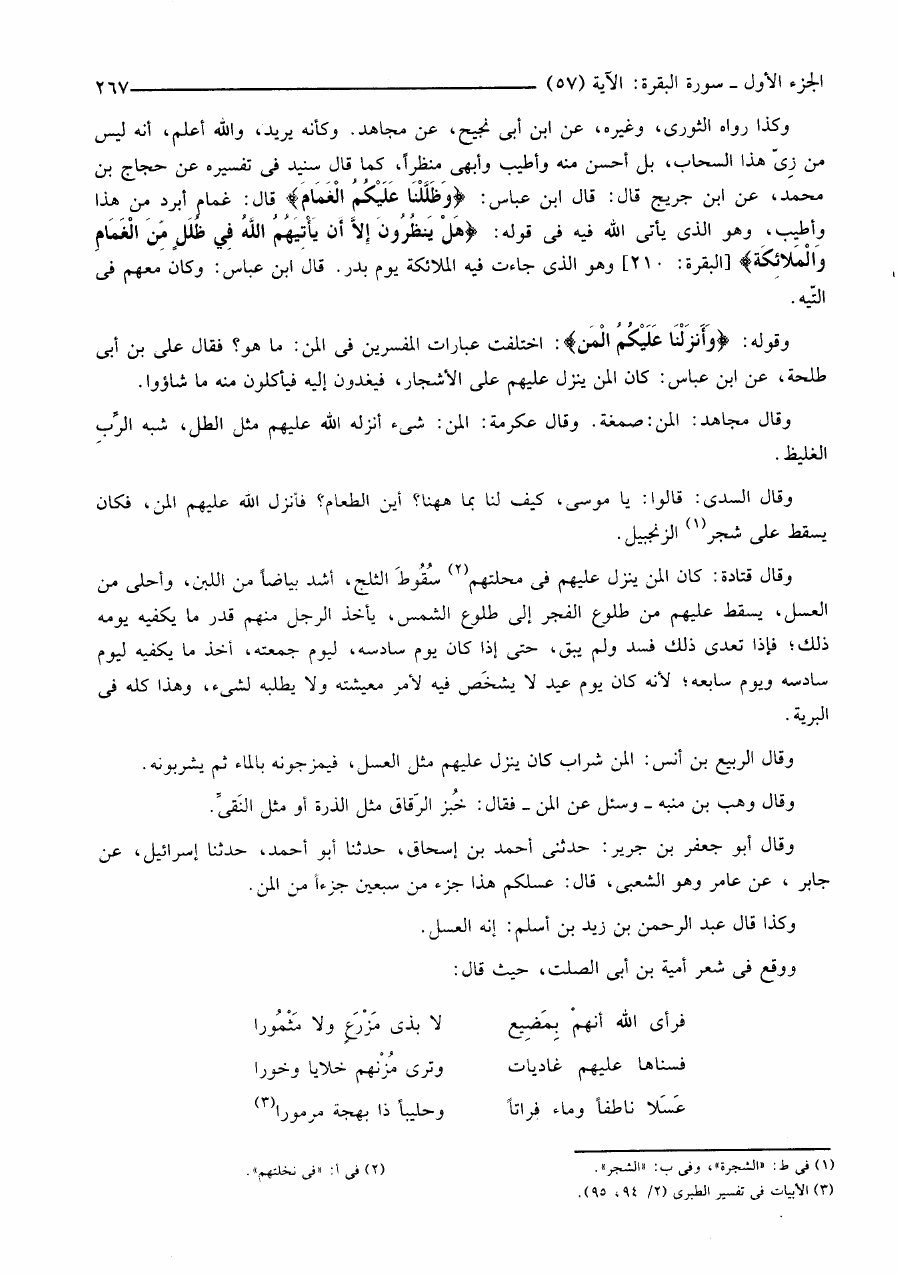 الجزء الأول ـ سورة البقرة: الآية (٥٧) ٢٦٧
وكذا رواه الثورى، وغيره، عن ابن أبى نجيح، عن مجاهد. وكأنه يريد، والله أعلم، أنه ليس
من زىّ هذا السحاب، بل أحسن منه وأطيب وأبهى منظراً، كما قال سنيد فى تفسيره عن حجاج بن
محمد، عن ابن جريج قال: قال ابن عباس: ﴿وَظَلَّلْنَا عَلَيْكُمُ الْغَمَامَ﴾ قال: غمام أبرد من هذا
وأطيب، وهو الذى يأتى الله فيه فى قوله: ﴿هَلْ يَنظُرُونَ إِلاَّ أَن يَأْتِيَهُمُ اللَّهُ فِي ظُلَلٍ مِّنَ الْغَمَامِ
وَالْمَلائِكَةُ﴾ [البقرة: ٢١٠] وهو الذى جاءت فيه الملائكة يوم بدر. قال ابن عباس: وكان معهم فى
التّيه.
وقوله: ﴿وَأَنزَلْنَا عَلَيْكُمُ الْمَنَّ﴾: اختلفت عبارات المفسرين فى المن: ما هو؟ فقال على بن أبى
طلحة، عن ابن عباس: كان المن ينزل عليهم على الأشجار، فيغدون إليه فيأكلون منه ما شاؤوا.
وقال مجاهد: المن: صمغة. وقال عكرمة: المن: شىء أنزله الله عليهم مثل الطل، شبه الرُّب
الغليظ.
وقال السدى: قالوا: يا موسى، كيف لنا بما ههنا؟ أين الطعام؟ فأنزل الله عليهم المن، فكان
يسقط على شجر(١) الزنجبيل.
وقال قتادة: كان المن ينزل عليهم فى محلتهم(٢) سُقُوطَ الثلج، أشد بياضاً من اللبن، وأحلى من
العسل، يسقط عليهم من طلوع الفجر إلى طلوع الشمس، يأخذ الرجل منهم قدر ما يكفيه يومه
ذلك؛ فإذا تعدى ذلك فسد ولم يبق، حتى إذا كان يوم سادسه، ليوم جمعته، أخذ ما يكفيه ليوم
سادسه ويوم سابعه؛ لأنه كان يوم عيد لا يشخَص فيه لأمر معيشته ولا يطلبه لشىء، وهذا كله فى
البرية.
وقال الربيع بن أنس: المن شراب كان ينزل عليهم مثل العسل، فيمزجونه بالماء ثم يشربونه.
وقال وهب بن منبه ـ وسئل عن المن ـ فقال: خُبز الرّقاق مثل الذرة أو مثل النَقىِّ.
وقال أبو جعفر بن جرير: حدثنى أحمد بن إسحاق، حدثنا أبو أحمد، حدثنا إسرائيل، عن
جابر ، عن عامر وهو الشعبى، قال: عسلكم هذا جزء من سبعين جزءاً من المن.
وكذا قال عبد الرحمن بن زيد بن أسلم: إنه العسل.
ووقع فى شعر أمية بن أبى الصلت، حيث قال:
فرأى الله أنهمْ بِمَضِيعِ لا بذى مَزْرَعٍ ولا مَثْمُورا
فسناها عليهم غاديات وترى مُزْنهم خلايا وخورا
عَسَلا ناطفاً وماء فِراتاً وحليباً ذا بهجة مرمورا(٣)
(١) فى ط: «الشجرة»، وفى ب: «الشجر». (٢) فى أ: «فى نخلتهم».
(٣) الأبيات فى تفسير الطبرى (٢/ ٩٤، ٩٥).